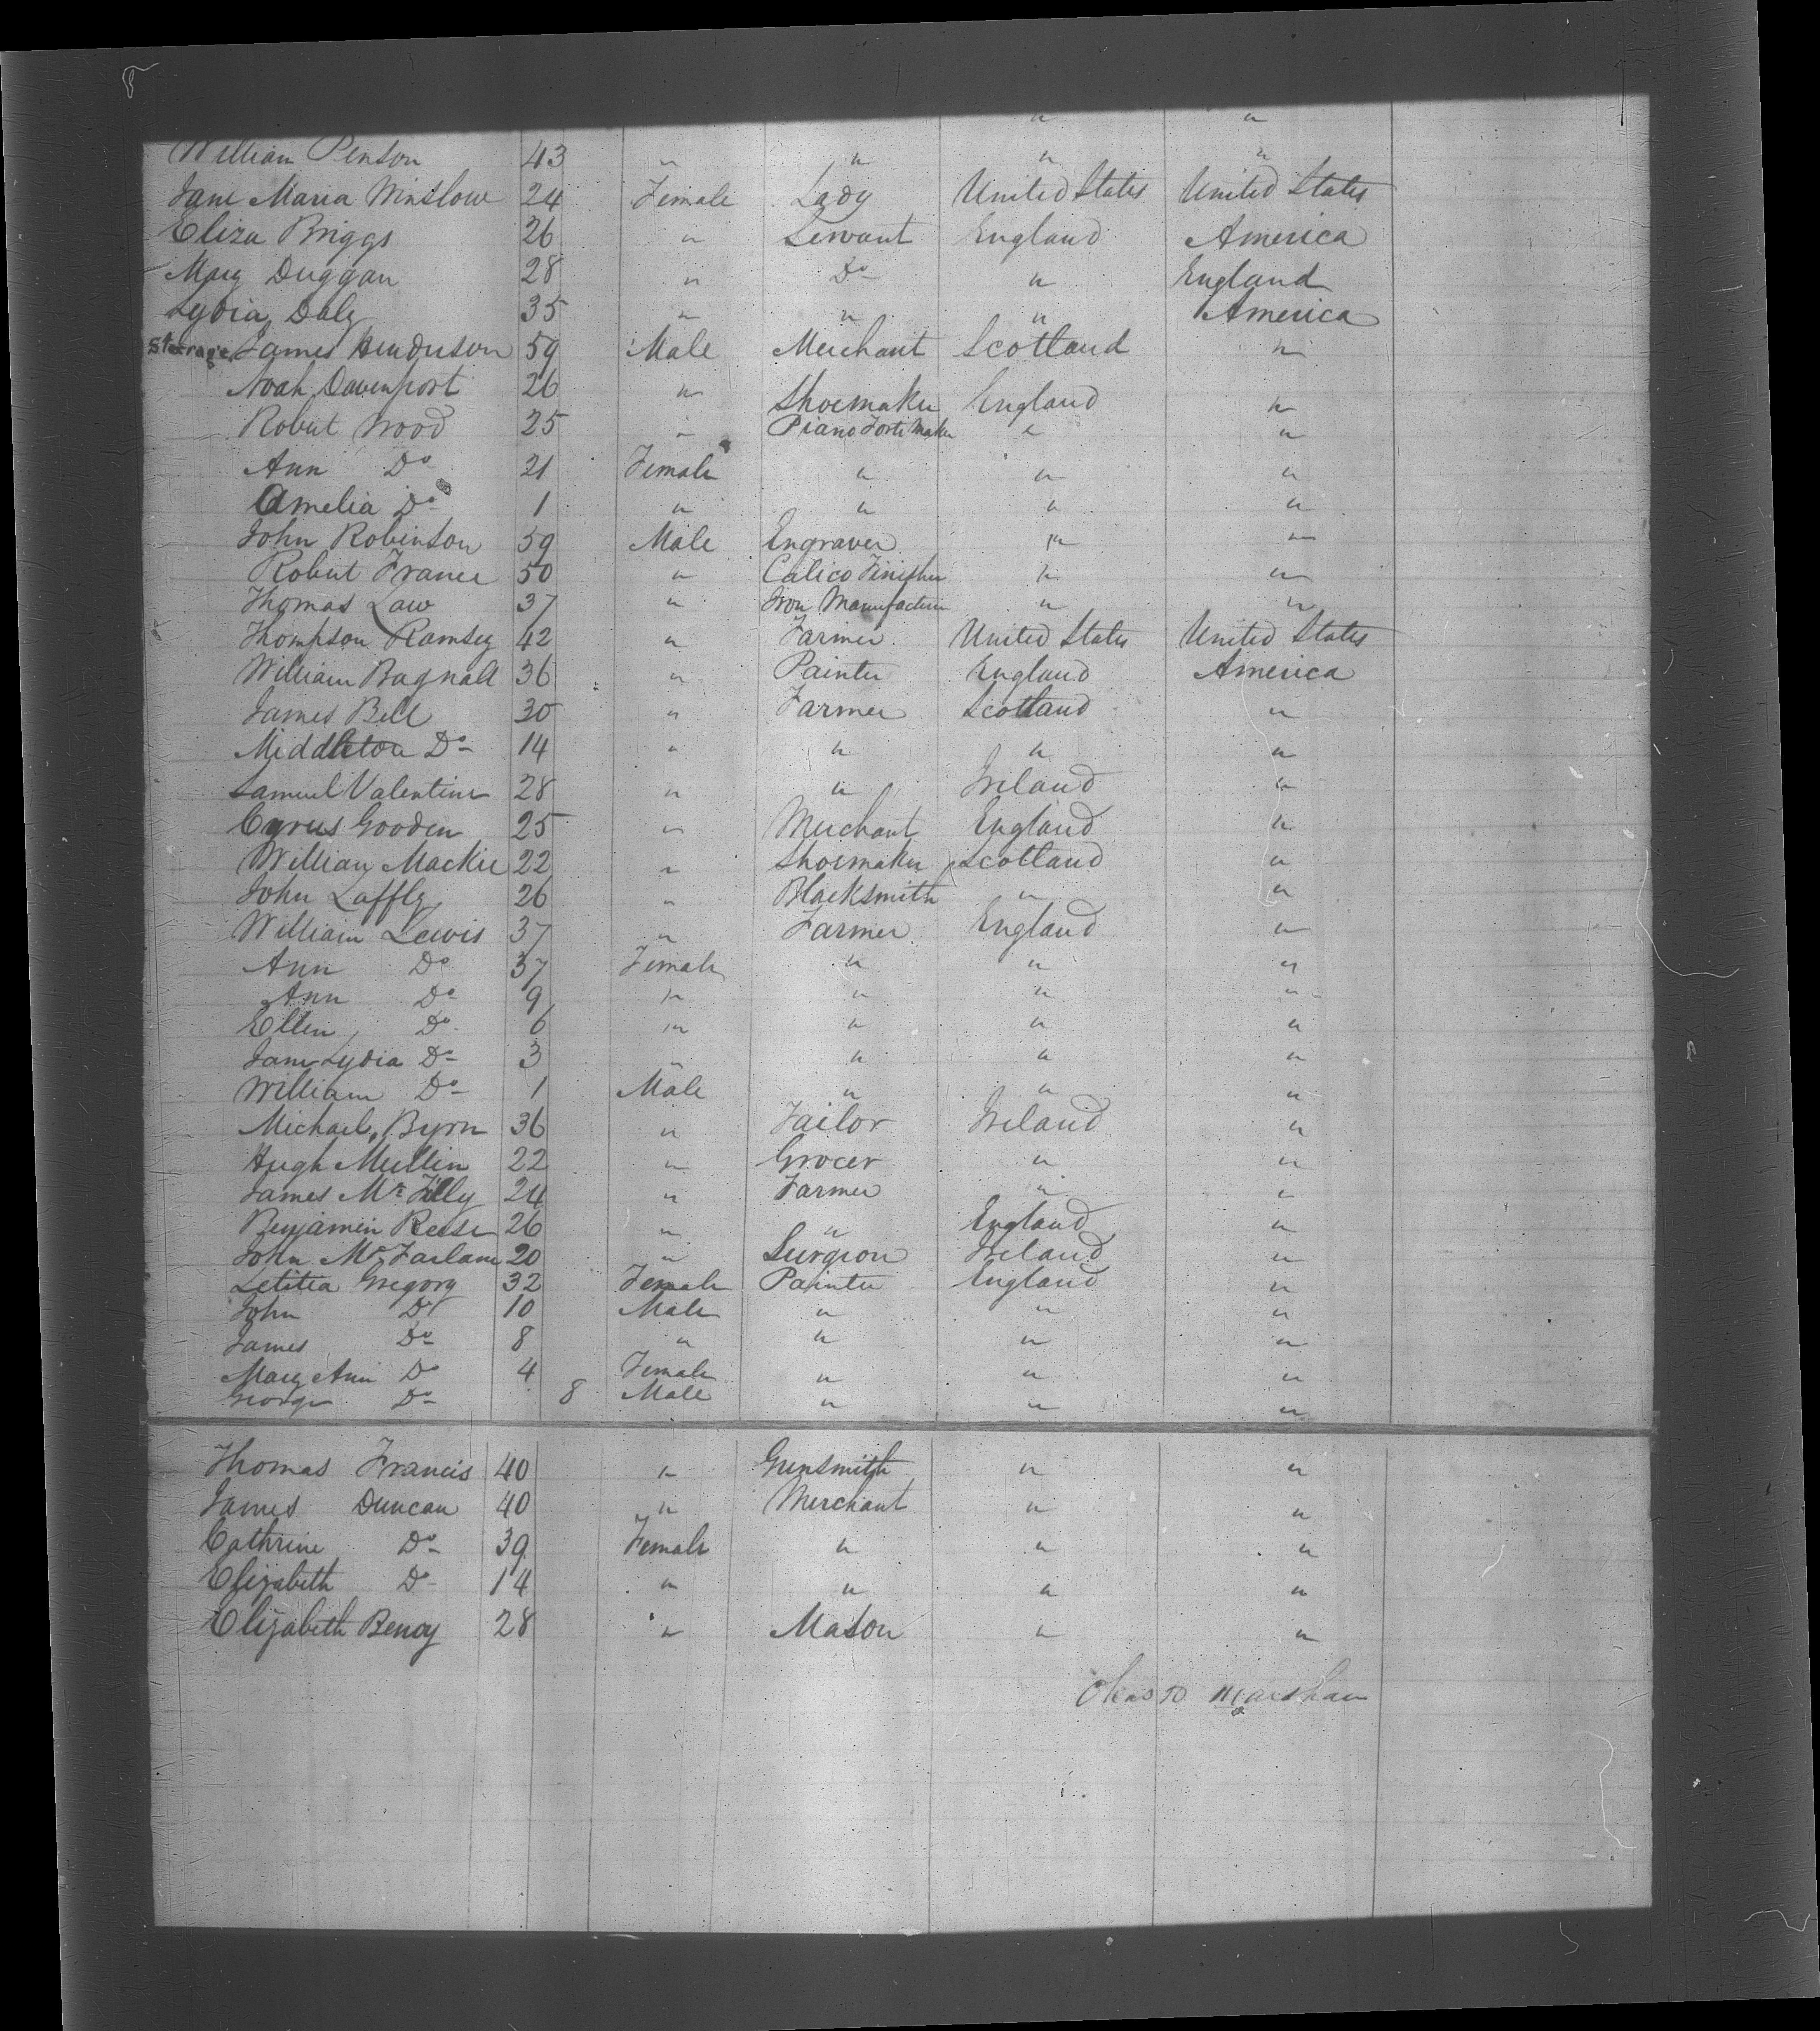 " "
William Penson 43 " " " "
Jane Maria Winslow 24 Female Lady United States United States
Eliza Briggs 26 " Servant England America
Mary Duggan 28 " Do " England
Lydia Daly 35 " " " America
Steerage James Henderson 59 Male Merchant Scotland "
Noah Davenport 26 " Shoemaker England "
Robert Wood 25 " Piano Forte Maker " "
Ann Do 21 Female " " "
Amelia Do 1 " " " "
John Robinson 59 Male Engraver " "
Robert France 50 " Calico Finisher " "
Thomas Law 37 " Iron Manufacturer " "
Thompson Ramsey 42 " Farmer United States United States
William Bagnall 36 " Painter England America
James Bell 30 " Farmer Scotland "
Middleton Do 14 " " " "
Samuel Valentine 28 " " Ireland "
Cyrus Gooden 25 " Merchant England "
William Mackie 22 " Shoemaker Scotland "
John Laffly 26 " Blacksmith " "
William Lewis 37 " Farmer England "
Ann Do 37 Female " " "
Ann Do 9 " " " "
Ellen Do 6 " " " "
Jane Lydia Do 3 " " " "
William Do 1 Male " " "
Michael Byrn 36 " Tailor Ireland "
Hugh Mullin 22 " Grocer " "
James Mc 24 " Farmer " "
Benjamin Reese 26 " " England "
John McFarlane 20 " Surgeon Ireland "
Letitia Gregory 32 Female Painter England "
John Do 10 Male " " "
James Do 8 " " " "
Mary Ann Do 4 Female " " "
George Do 8 Male " " "
Thomas Francis 40 " Gunsmith " "
James Duncan 40 " Merchant " "
Cathrine Do 39 Female " " "
Elizabeth Do 14 " " " "
Elizabeth Benoy 28 " Mason " "
Marshall